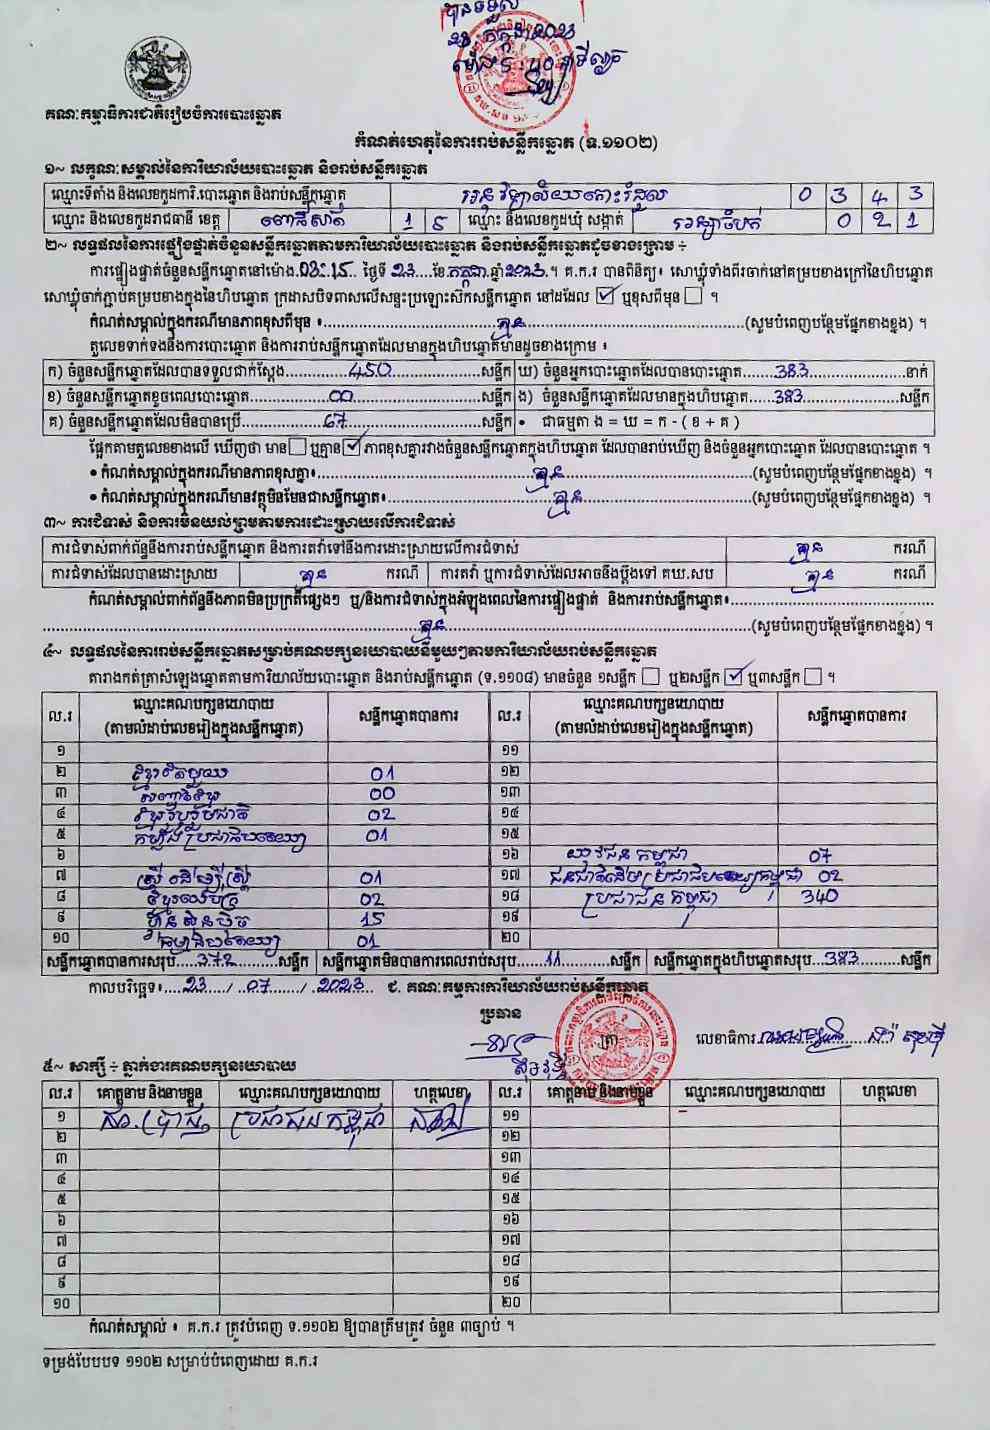 បានទទួល
គណៈកម្មាធិការជាតិរៀបចំការបោះឆ្នោត
កំណត់ហេតុនៃការរាប់សន្លឹកឆ្នោត (ទ.១១០២)
១~ លក្ខណៈសម្គាល់នៃការិយាល័យបោះឆ្នោត និងរាប់សន្លឹកឆ្នោត
ឈ្មោះទីតាំង និងលេខកូដការិ.បោះឆ្នោត និងរាប់សន្លឹកឆ្នោត 0 3 4 3
ឈ្មោះ និងលេខកូដរាជធានី ខេត្ត ពោធិ៍សាត់ 1 5 ឈ្មោះ និងលេខកូដឃុំ សង្កាត់ 0 2 1
២~ លទ្ធផលនៃការផ្ទៀងផ្ទាត់ចំនួនសន្លឹកឆ្នោតតាមការិយាល័យបោះឆ្នោត និងរាប់សន្លឹកឆ្នោតដូចខាងក្រោម ÷
ការផ្ទៀងផ្ទាត់ចំនួនសន្លឹកឆ្នោតនៅម៉ោង 03:15 ថ្ងៃទី 23 ខែ កក្កដា ឆ្នាំ 2023 ។ គ.ក.រ បានពិនិត្យ៖ សោឃ្លុំទាំងពីរចាក់នៅគម្របខាងក្រៅនៃហិបឆ្នោត
សោឃ្លុំចាក់ភ្ជាប់គម្របខាងក្នុងនៃហិបឆ្នោត ក្រដាសបិទពាសលើសន្ទះប្រឡោះស៊កសន្លឹកឆ្នោត នៅដដែល ☑ ឬខុសពីមុន ☐ ។
កំណត់សម្គាល់ក្នុងករណីមានភាពខុសពីមុន ៖ គ្មាន (សូមបំពេញបន្ថែមផ្នែកខាងខ្នង) ។
តួលេខទាក់ទងនឹងការបោះឆ្នោត និងការរាប់សន្លឹកឆ្នោតដែលមានក្នុងហិបឆ្នោតមានដូចខាងក្រោម ៖
ក) ចំនួនសន្លឹកឆ្នោតដែលបានទទួលជាក់ស្តែង 450 សន្លឹក ឃ) ចំនួនអ្នកបោះឆ្នោតដែលបានបោះឆ្នោត 383 នាក់
ខ) ចំនួនសន្លឹកឆ្នោតខូចពេលបោះឆ្នោត 00 សន្លឹក ង) ចំនួនសន្លឹកឆ្នោតដែលមានក្នុងហិបឆ្នោត 383 សន្លឹក
គ) ចំនួនសន្លឹកឆ្នោតដែលមិនបានប្រើ 67 សន្លឹក • ជាធម្មតា ង = ឃ = ក - ( ខ + គ )
ផ្អែកតាមតួលេខខាងលើ ឃើញថា មាន ☐ ឬគ្មាន ☑ ភាពខុសគ្នារវាងចំនួនសន្លឹកឆ្នោតក្នុងហិបឆ្នោត ដែលបានរាប់ឃើញ និងចំនួនអ្នកបោះឆ្នោត ដែលបានបោះឆ្នោត ។
• កំណត់សម្គាល់ក្នុងករណីមានភាពខុសគ្នា៖ គ្មាន (សូមបំពេញបន្ថែមផ្នែកខាងខ្នង) ។
• កំណត់សម្គាល់ក្នុងករណីមានវត្ថុមិនមែនជាសន្លឹកឆ្នោត៖ គ្មាន (សូមបំពេញបន្ថែមផ្នែកខាងខ្នង) ។
៣~ ការជំទាស់ និងការមិនយល់ព្រមតាមការដោះស្រាយលើការជំទាស់
ការជំទាស់ពាក់ព័ន្ធនឹងការរាប់សន្លឹកឆ្នោត និងការតវ៉ាទៅនឹងការដោះស្រាយលើការជំទាស់ គ្មាន ករណី
ការជំទាស់ដែលបានដោះស្រាយ គ្មាន ករណី ការតវ៉ា ឬការជំទាស់ដែលអាចនឹងប្តឹងទៅ គឃ.សប គ្មាន ករណី
កំណត់សម្គាល់ពាក់ព័ន្ធនឹងភាពមិនប្រក្រតីផ្សេងៗ ឬ/និងការជំទាស់ក្នុងអំឡុងពេលនៃការផ្ទៀងផ្ទាត់ និងការរាប់សន្លឹកឆ្នោត៖
គ្មាន (សូមបំពេញបន្ថែមផ្នែកខាងខ្នង) ។
៤~ លទ្ធផលនៃការរាប់សន្លឹកឆ្នោតសម្រាប់គណបក្សនយោបាយនីមួយៗតាមការិយាល័យរាប់សន្លឹកឆ្នោត
តារាងកត់ត្រាសំឡេងឆ្នោតតាមការិយាល័យបោះឆ្នោត និងរាប់សន្លឹកឆ្នោត (ទ.១១០៨) មានចំនួន ១សន្លឹក ☐ ឬ២សន្លឹក ☑ ឬ៣សន្លឹក ☐ ។
ល.រ ឈ្មោះគណបក្សនយោបាយ (តាមលំដាប់លេខរៀងក្នុងសន្លឹកឆ្នោត) សន្លឹកឆ្នោតបានការ ល.រ ឈ្មោះគណបក្សនយោបាយ (តាមលំដាប់លេខរៀងក្នុងសន្លឹកឆ្នោត) សន្លឹកឆ្នោតបានការ
១ ១១
២ 01 ១២
៣ 00 ១៣
៤ 02 ១៤
៥ កម្លាំងប្រជាធិបតេយ្យ 01 ១៥
៦ ១៦ យុវជនកម្ពុជា 07
៧ ស្ត្រីដើម្បីស្ត្រី 01 ១៧ ជនជាតិដើមប្រជាធិបតេយ្យកម្ពុជា 02
៨ 02 ១៨ ប្រជាជនកម្ពុជា 340
៩ ហ្វ៊ុនស៊ិនប៉ិច 15 ១៩
១០ 01 ២០
សន្លឹកឆ្នោតបានការសរុប 372 សន្លឹក សន្លឹកឆ្នោតមិនបានការពេលរាប់សរុប 11 សន្លឹក សន្លឹកឆ្នោតក្នុងហិបឆ្នោតសរុប 383 សន្លឹក
កាលបរិច្ឆេទ៖ 23 / 07 / 2023 ជ. គណៈកម្មការការិយាល័យរាប់សន្លឹកឆ្នោត
ប្រធាន
ត្រា លេខាធិការ
៥~ សាក្សី ÷ ភ្នាក់ងារគណបក្សនយោបាយ
ល.រ គោត្តនាម និងនាមខ្លួន ឈ្មោះគណបក្សនយោបាយ ហត្ថលេខា ល.រ គោត្តនាម និងនាមខ្លួន ឈ្មោះគណបក្សនយោបាយ ហត្ថលេខា
១ ប្រជាជនកម្ពុជា ១១
២ ១២
៣ ១៣
៤ ១៤
៥ ១៥
៦ ១៦
៧ ១៧
៨ ១៨
៩ ១៩
១០ ២០
កំណត់សម្គាល់ ៖ គ.ក.រ ត្រូវបំពេញ ទ.១១០២ ឱ្យបានត្រឹមត្រូវ ចំនួន ៣ច្បាប់ ។
ទម្រង់បែបបទ ១១០២ សម្រាប់បំពេញដោយ គ.ក.រ